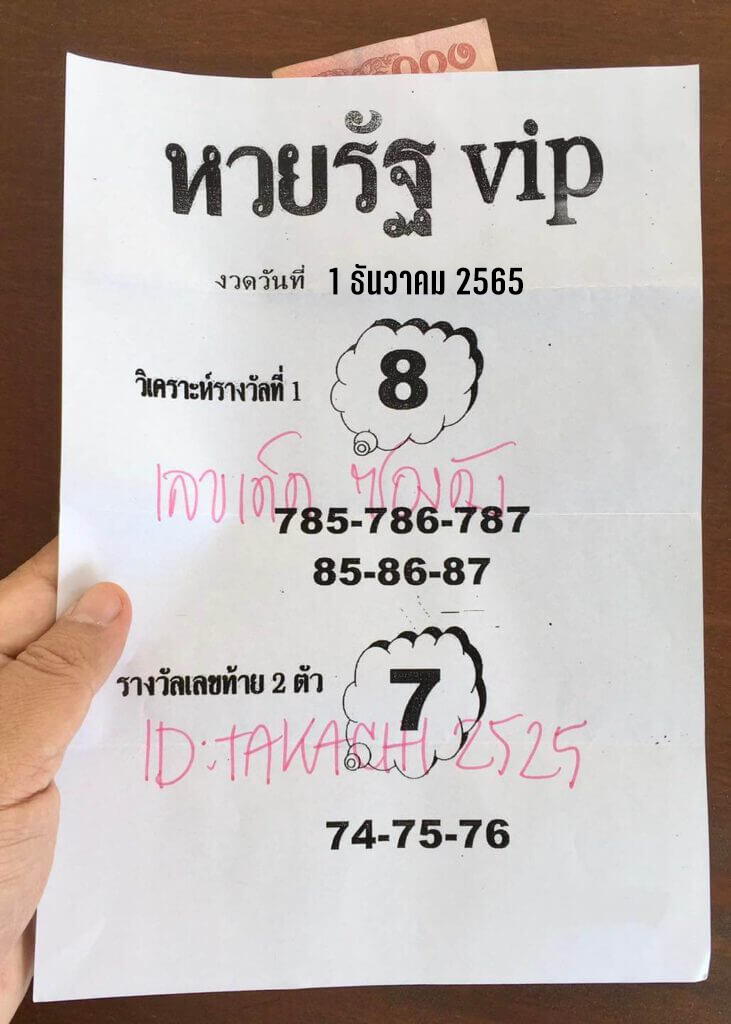 ๑๐๐๐
หวยรัฐ vip
งวดวันที่ 1 ธันวาคม 2565
วิเคราะห์รางวัลที่ 1 8
เลขเด็ด ซองดัง
785-786-787
85-86-87
รางวัลเลขท้าย 2 ตัว 7
ID:TAKACHI 2525
74-75-76